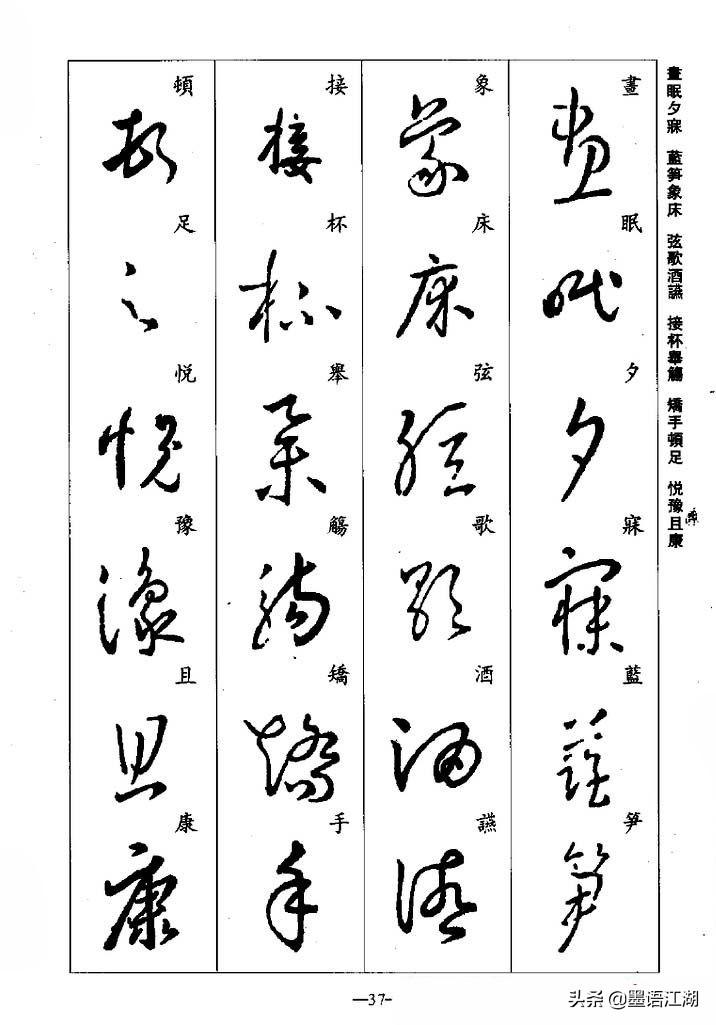 晝眠夕寐 藍笋象床 弦歌酒讌 接杯舉觴 矯手頓足 悅豫且康
晝眠夕寐藍笋
象床弦歌酒讌
接杯舉觴矯手
頓足悅豫且康
—37-
头条 @墨语江湖